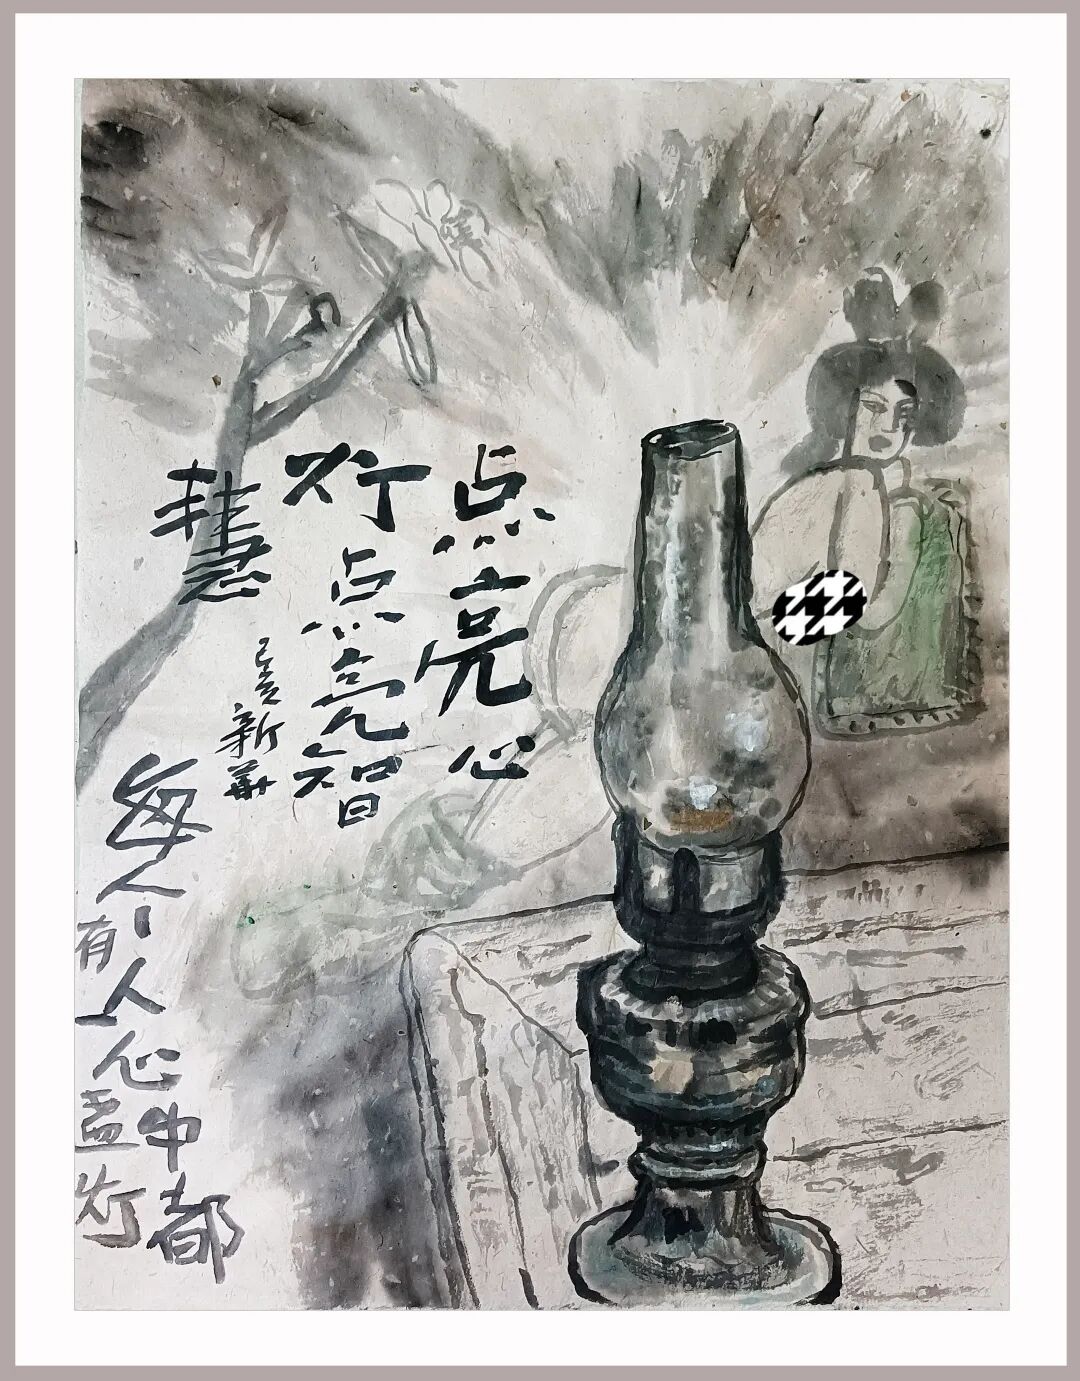 点亮心
灯点亮智
慧
己亥新華
每个人心中都
有一盏灯